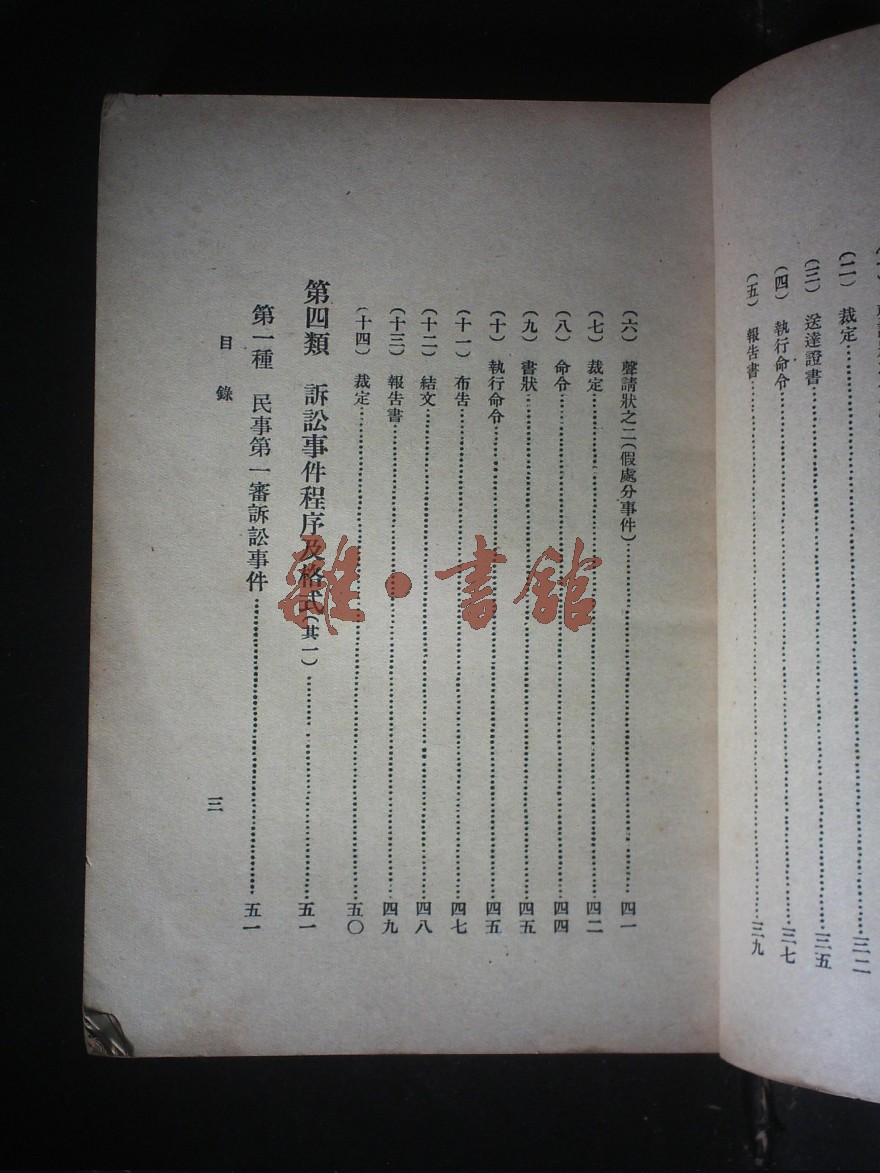 (二) 裁定 三二
(三) 送達證書 三五
(四) 執行命令 三七
(五) 報告書 三九
(六) 聲請狀之二(假處分事件) 四一
(七) 裁定 四二
(八) 命令 四四
(九) 書狀 四五
(十) 執行命令 四五
(十一) 布告 四七
(十二) 結文 四八
(十三) 報告書 四九
(十四) 裁定 五〇
第四類 訴訟事件程序及格式(其一) 五一
第一種 民事第一審訴訟事件 五一
目錄
三
雜·書館